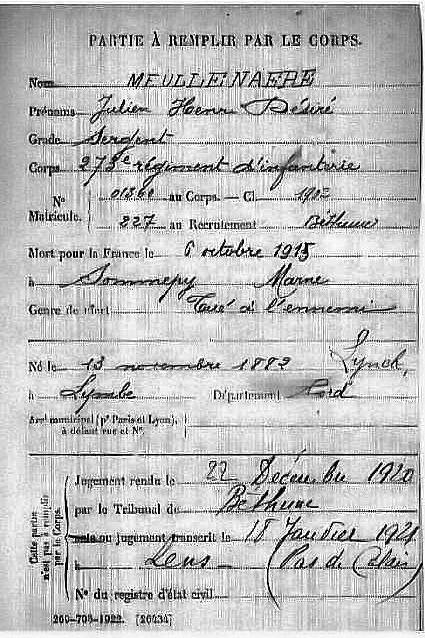 PARTIE À REMPLIR PAR LE CORPS.
Nom MEULLENAERE
Prénoms Julien Henri Désiré
Grade Sergent
Corps 273e régiment d'infanterie
N° 01360 au Corps. — Cl. 1902
Matricule. 227 au Recrutement Béthune
Mort pour la France le 6 octobre 1915
à Sommepy Marne
Genre de mort Tué à l'ennemi
Né le 13 novembre 1882 Lynck,
à Département Nord
Arrt municipal (pr Paris et Lyon),
à défaut rue et N°.
Cette partie n'est pas à remplir par le Corps.
Jugement rendu le 22 Décembre 1920
par le Tribunal de Béthune
ou jugement transcrit le 18 Janvier 1921
à Lens — (Pas de Calais)
N° du registre d'état civil
269-708-1922. [26434]